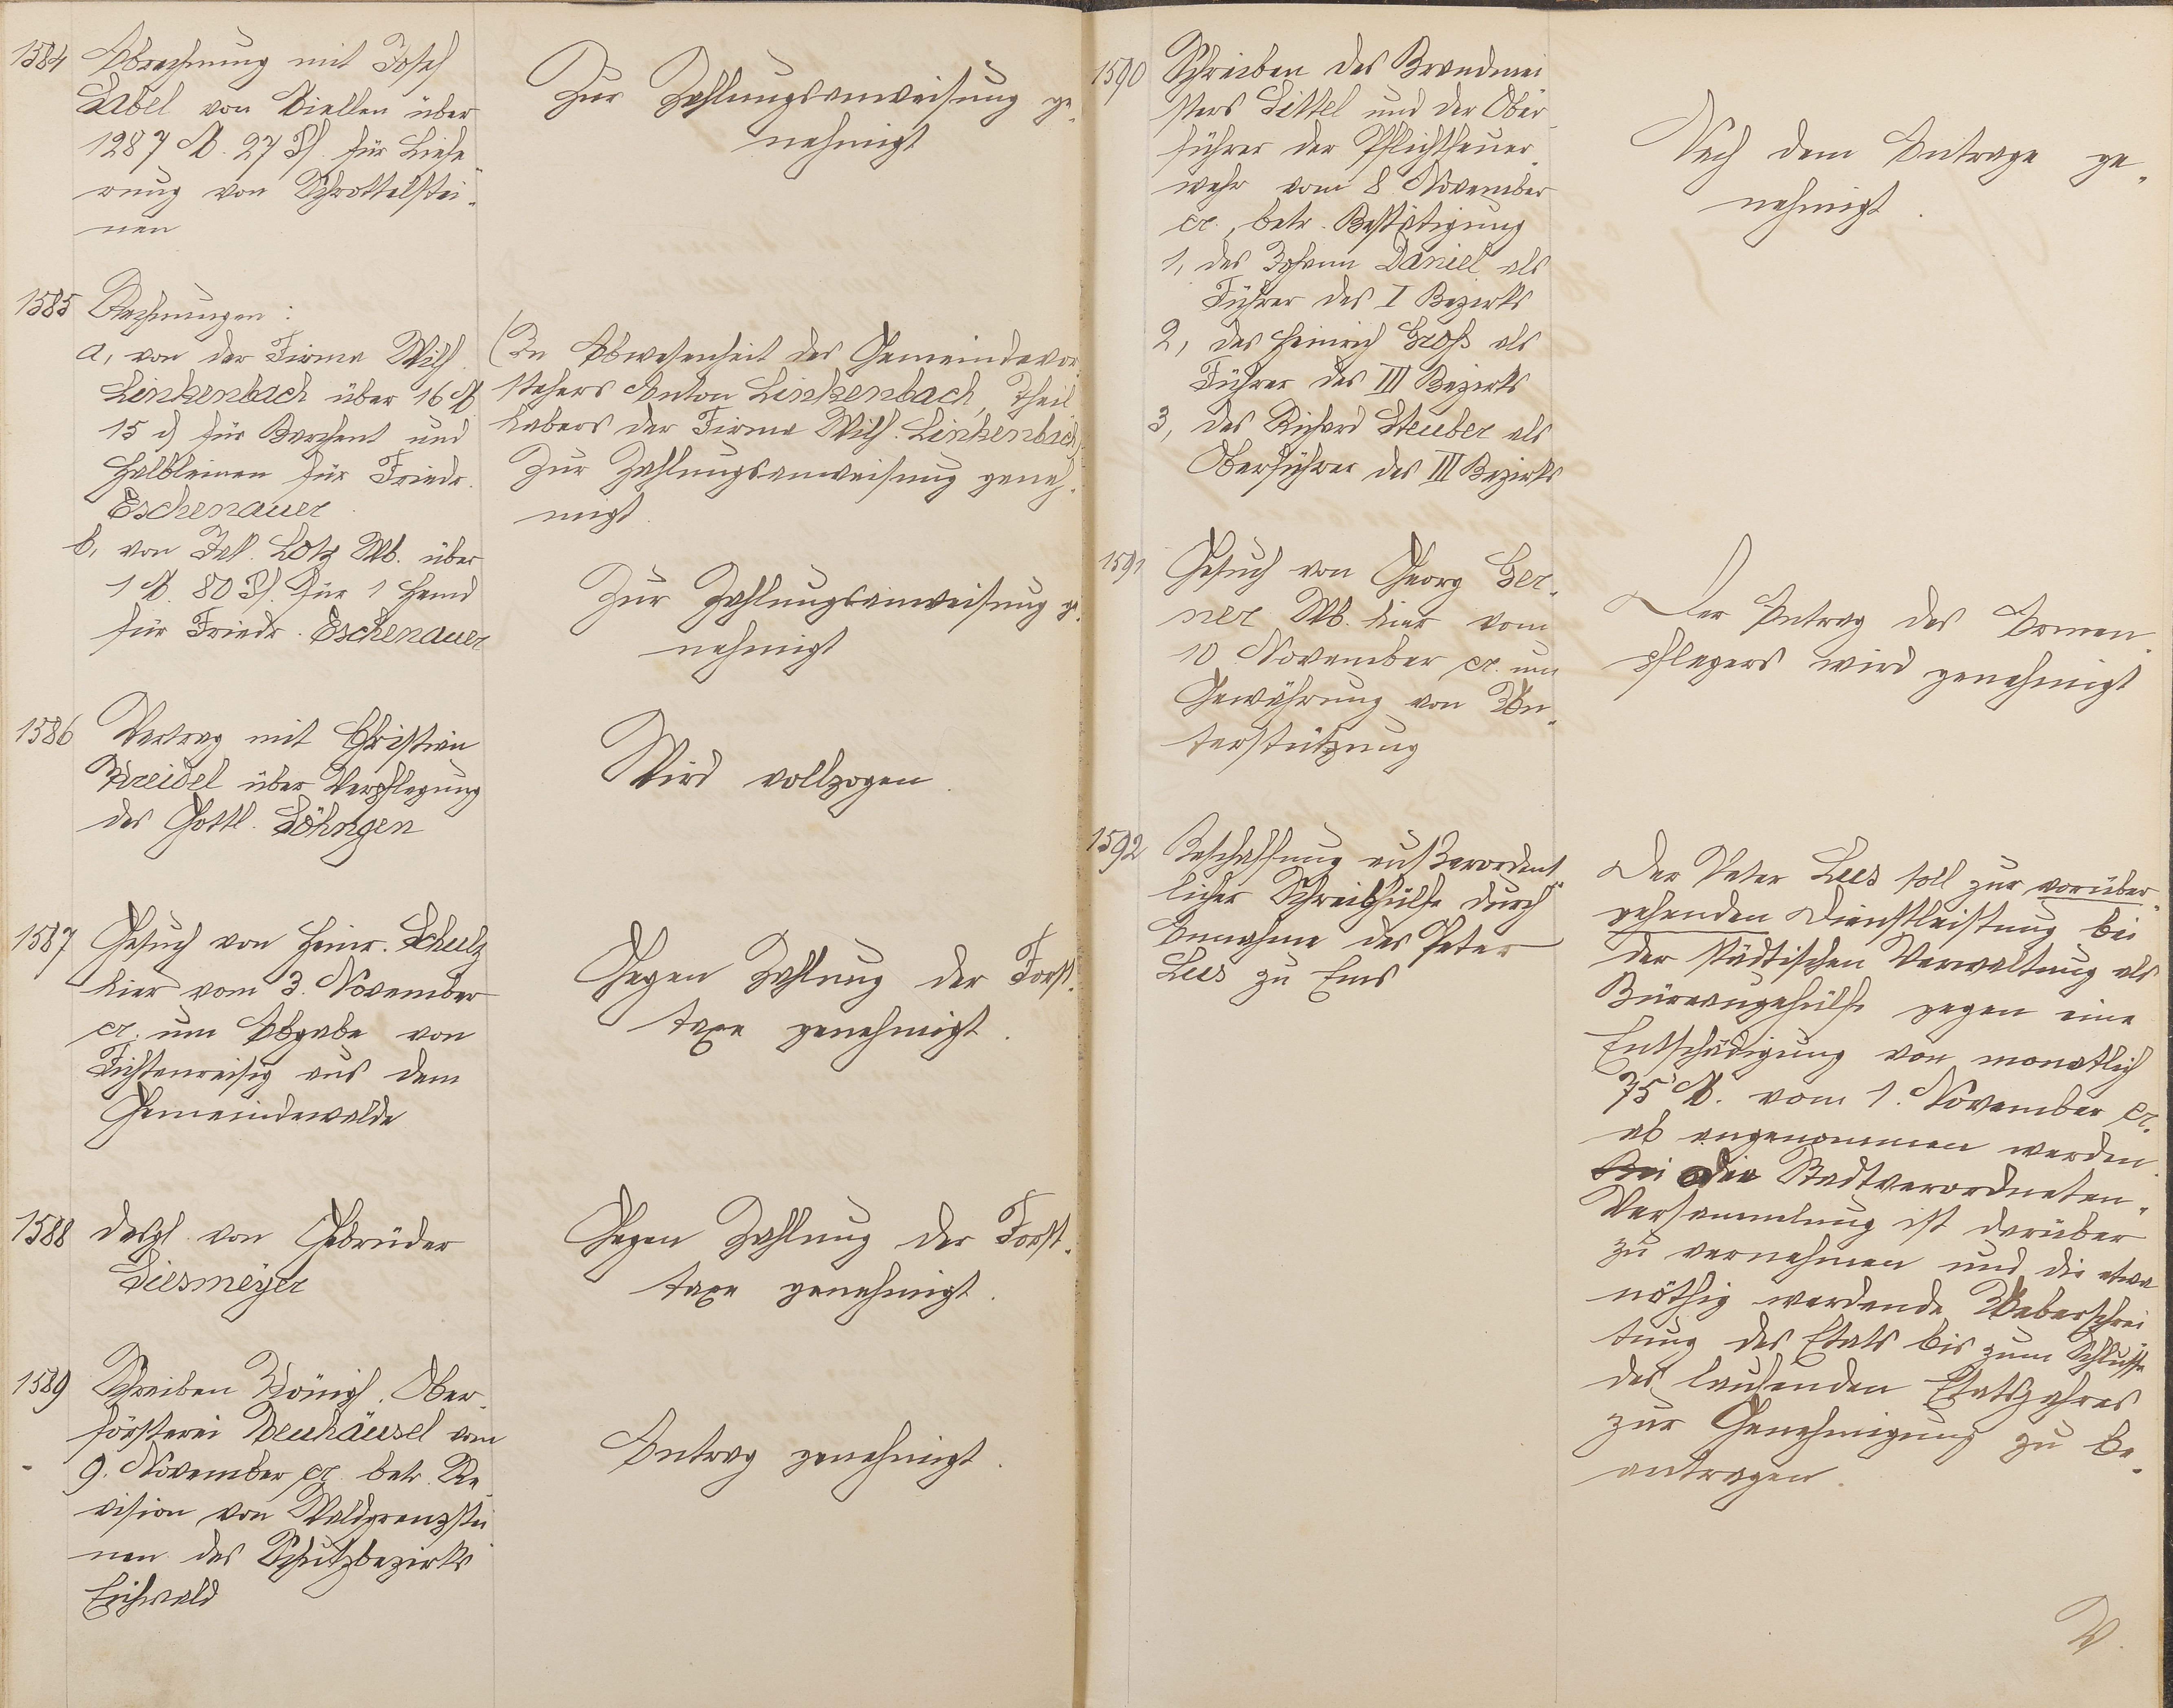 1584 Abrechnung mit Josef
Label von Niellen über
1287 M. 27 Pf. für Liefe-
rung von Schrottelstei-
nen
Zur Zahlungsanweisung ge-
nehmigt
1585 Rechnungen:
a, von der Firma Wilh.
Linkenbach über 16 M
15 d für Barchent und
Halbleinen für Friedr.
Eschenauer
(In Abwesenheit des Gemeindevor-
stehers Anton Linkenbach, Theil-
habers der Firma Wilh. Linkenbach)
Zur Zahlungsanweisung geneh-
migt.
b, von Jul. Lotz Wb. über
1 M. 80 Pf. für 1 Hemd
für Friedr. Eschenauer
Zur Zahlungsanweisung ge-
nehmigt
1586 Vertrag mit Christian
Kreidel über Verpflegung
des Gottl. Löhngen
Wird vollzogen.
1587 Gesuch von Heinr. Schulz
hier vom 3. November
cr. um Abgabe von
Fichtenreisig aus dem
Gemeindewalde
Gegen Zahlung der Forst-
taxe genehmigt.
1588 desgl. von Gebrüder
Diesmeyer
Gegen Zahlung der Forst-
taxe genehmigt.
1589 Schreiben Königl. Ober-
försterei Neuhäusel vom
9. November cr. betr. Re-
vision von Waldgrenzstei
nen des Schutzbezirks
Eichwald
Antrag genehmigt.
1590 Schreiben des Brandmei
sters Littel und der Ober-
führer der Pflichtfeuer-
wehr vom 8 November
cr., betr. Bestätigung
1, des Johann Daniel als
Führer des I Bezirks
2, des Heinrich Groß als
Führer des III Bezirks
3, des Richard Steuber als
Oberführer des III Bezirks
Nach dem Antrage ge-
nehmigt.
1591 Gesuch von Georg Ger-
ner Wb. hier vom
10 November cr. um
Gewährung von Un-
terstützung
Der Antrag des Armen-
pflegers wird genehmigt
1592 Beschaffung außerordent-
licher Schreibhülfe durch
Annahme des Peter
Lees zu Ems
Der Peter Lees soll zur vorüber-
gehenden Dienstleistung bei
der städtischen Verwaltung als
Büreaugehülfe gegen eine
Entschädigung von monatlich
75 M. vom 1. November cr.
ab angenommen werden.
Die Stadtverordneten-
Versammlung ist darüber
zu vernehmen und die etwa
nöthig werdende Ueberschrei
tung des Etats bis zum Schlusse
des laufenden Etatsjahres
zur Genehmigung zu be-
antragen.